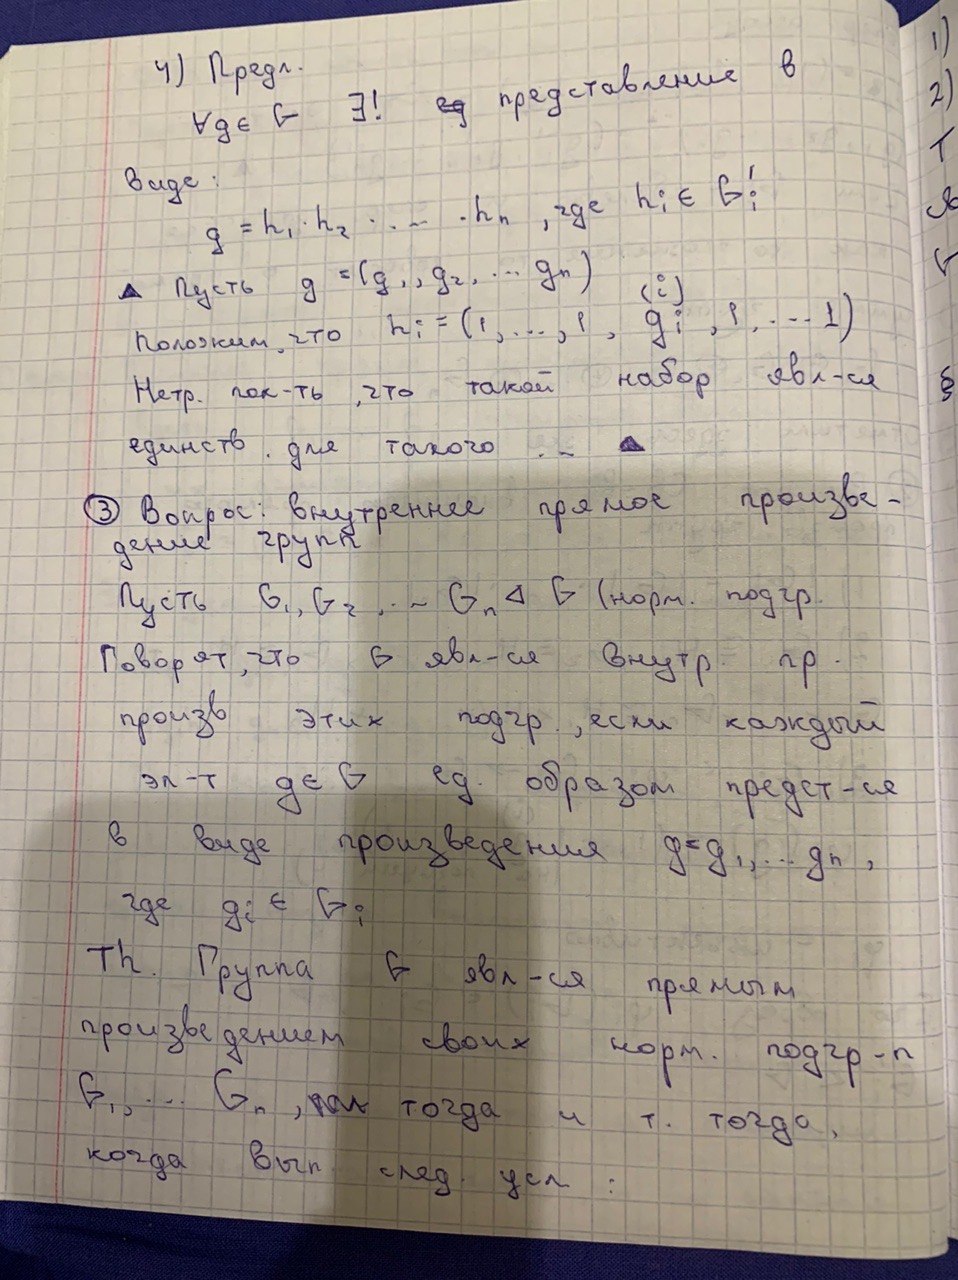 4) Предл.
∀g∈ G ∃! представление в
виде:
g = h₁·h₂ · ... ·hₙ , где hᵢ ∈ Gᵢ'
▲ Пусть g =(g₁, g₂, ... gₙ)
(i)
Положим, что hᵢ = (1, ..., 1, gᵢ, 1, ... 1)
Нетр. пок-ть, что такой набор явл-ся
единств. для такого ... ▲
③ Вопрос: внутреннее прямое произве-
дение групп
Пусть G₁, G₂, ... Gₙ ⊲ G (норм. подгр.
Говорят, что G явл-ся внутр. пр.
произв этих подгр., если каждый
эл-т g∈ G ед. образом предст-ся
в виде произведения g=g₁,... gₙ,
где gᵢ ∈ Gᵢ
Th. Группа G явл-ся прямым
произведением своих норм. подгр-п
G₁,... Gₙ, тогда и т. тогда,
когда вып след. усл :
1)
2)
Т
G
§